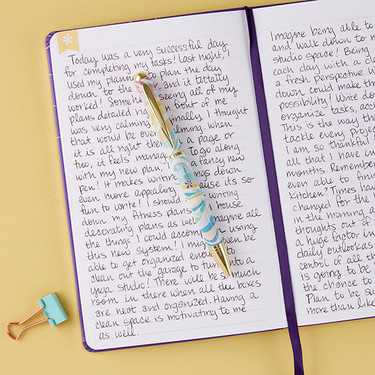 Today was a very successful day
for completing my tasks! Last night, I
used my planner to plan the day
down to the and it totally
worked! Some seeing all of my
plans detailed right in front of me
was very calming. Normally, I thought
that would be overwhelming. When
it is all right there on a page or
too, it feels manag To go along
with my new pen, I a fancy new
pen! It makes writing things down
even more appealing because its so
fun to write! I should writing
down my fitness plans house
decorating plans as well. Imagine all
the things I could accomp using
this new system! I might even be
able to get organized enough to
clean out the garage to turn into a
yoga studio! There will be so much
room in there when all the boxes
are neat and organized. Having a
clean space is motivating to me
as well
Imagine being able to
and walk down to m
studio space! Being
each day with a cle
a fresh perspective w
down could make th
possibility! Write dow
organize tasks, acc
This is the way th
tackle every projec
I am so thankful
all that I have
months. Remember
even able to fin
kitchen? Times hav
changed for the
in the morning a
thoughts out of
a huge factor in
daily outlook as
control of all th
is going to be
the chance to
Plan to be su
more than like